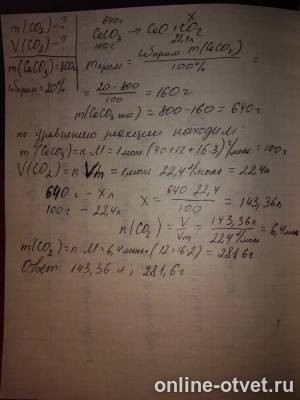 m(CO₂) - ?
V(CO₂) - ?
m(CaCO₃) = 800г
wприм = 20%
640г X
CaCO₃ → CaO + CO₂
100г 22,4л
mприм = wприм · m(CaCO₃) / 100% =
= 20 · 800 / 100 = 160 г
m(CaCO₃) = 800 - 160 = 640г
по уравнению реакции находим:
m(CaCO₃) = n · M = 1моль (40+12+16·3) г/моль = 100г
V(CO₂) = n · Vm = 1моль · 22,4 л/моль = 22,4л
640г - Xл
100г - 22,4л
X = 640 · 22,4 / 100 = 143,36л
n(CO₂) = V / Vm = 143,36л / 22,4 л/моль = 6,4моль
m(CO₂) = n · M = 6,4моль · (12+16·2) = 281,6г
Ответ: 143,36 л; 281,6г
online-otvet.ru